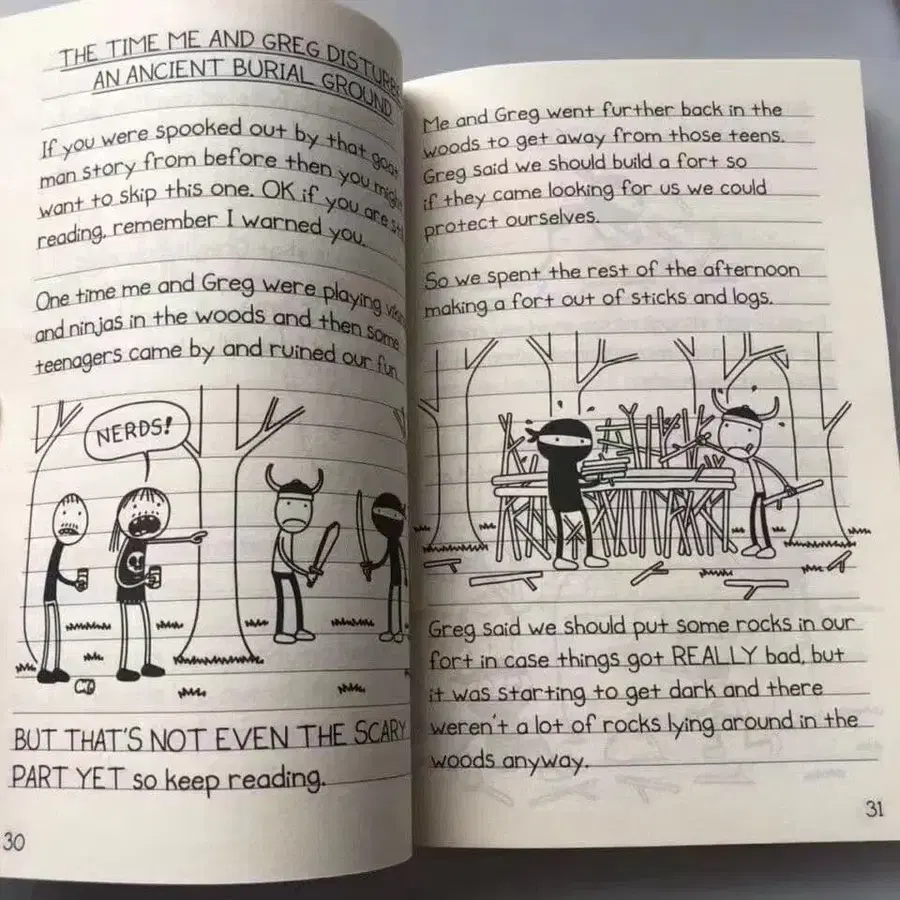 THE TIME ME AND GREG
AN ANCIENT BURIAL GROUND
If you were spooked out by that
man story from before then you
want to skip this one. OK if you are
reading, remember I warned you.
One time me and Greg were playing
and ninjas in the woods and then some
teenagers came by and ruined our fun.
NERDS!
BUT THAT'S NOT EVEN THE SCARY
PART YET so keep reading.
30
Me and Greg went further back in the
woods to get away from those teens.
Greg said we should build a fort so
if they came looking for us we could
protect ourselves.
So we spent the rest of the afternoon
making a fort out of sticks and logs.
Greg said we should put some rocks in our
fort in case things got REALLY bad, but
it was starting to get dark and there
weren't a lot of rocks lying around in the
woods anyway.
31